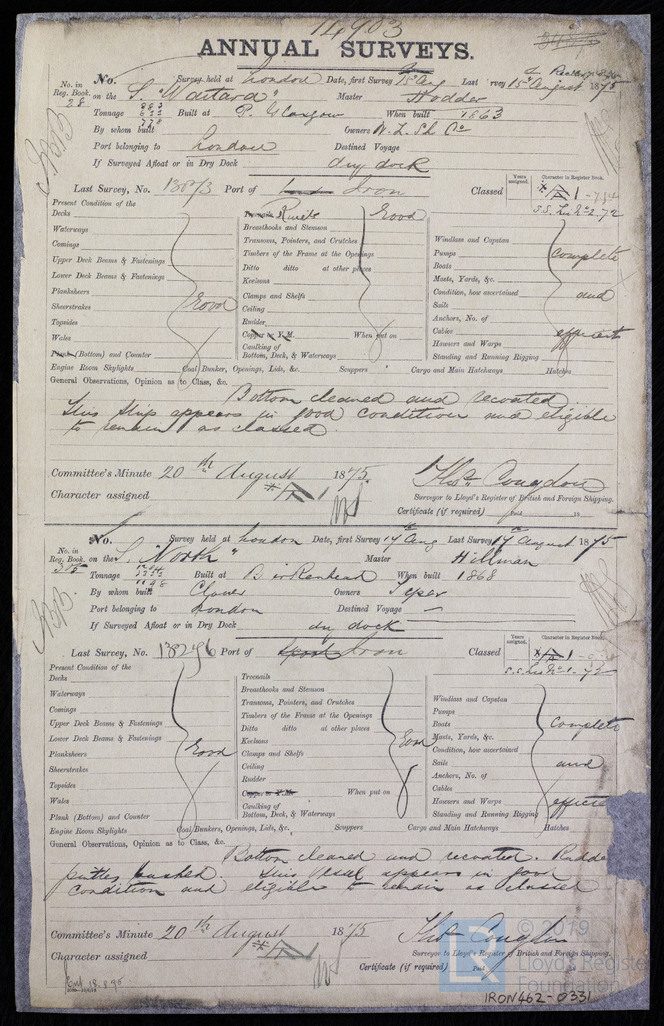 14903
ANNUAL SURVEYS.
No. in Reg. Book. 28
No. Survey held at London Date, first Survey Last Survey 15th August 1875
on the S. "Waitara" Master Hodder
Tonnage Built at P. Glasgow When built 1863
By whom built Owners
Port belonging to London Destined Voyage
If Surveyed Afloat or in Dry Dock dry dock
Last Survey, No. 13873 Port of Iron Classed
Years assigned.
Character in Register Book.
Present Condition of the
Decks
Waterways
Comings
Upper Deck Beams & Fastenings
Lower Deck Beams & Fastenings
Planksheers
Sheerstrakes
Topsides
Wales
Plank (Bottom) and Counter
Good
Treenails Rivets Good
Breasthooks and Stemson
Transoms, Pointers, and Crutches
Timbers of the Frame at the Openings
Ditto ditto at other places
Keelsons
Clamps and Shelfs
Ceiling
Rudder
Copper or Y.M. When put on
Caulking of Bottom, Deck, & Waterways
Windlass and Capstan
Pumps
Boats
Masts, Yards, &c.
Condition, how ascertained
Sails
Anchors, No. of
Cables
Hawsers and Warps
Standing and Running Rigging
complete
and
efficient
Engine Room Skylights Coal Bunker, Openings, Lids, &c. Scuppers Cargo and Main Hatchways Hatches
General Observations, Opinion as to Class, &c.
Bottom cleaned and recoated.
This Ship appears in good condition and eligible
to remain as classed
Committee's Minute 20th August 1875.
Character assigned
Thos. Congdon
Surveyor to Lloyd's Register of British and Foreign Shipping.
Certificate (if required)
No. in Reg. Book.
No. Survey held at London Date, first Survey 17th Aug Last Survey 17th August 1875
on the S. North " Master Hillman
Tonnage Built at Birkenhead When built 1868
By whom built Clover Owners
Port belonging to London Destined Voyage
If Surveyed Afloat or in Dry Dock dry dock
Last Survey, No. 138296 Port of Iron Classed
Years assigned.
Character in Register Book.
Present Condition of the
Decks
Waterways
Comings
Upper Deck Beams & Fastenings
Lower Deck Beams & Fastenings
Planksheers
Sheerstrakes
Topsides
Wales
Plank (Bottom) and Counter
Good
Treenails
Breasthooks and Stemson
Transoms, Pointers, and Crutches
Timbers of the Frame at the Openings
Ditto ditto at other places
Keelsons
Clamps and Shelfs
Ceiling
Rudder
Copper or Y.M. When put on
Caulking of Bottom, Deck, & Waterways
Good
Windlass and Capstan
Pumps
Boats
Masts, Yards, &c.
Condition, how ascertained
Sails
Anchors, No. of
Cables
Hawsers and Warps
Standing and Running Rigging
complete
and
Engine Room Skylights Coal Bunkers, Openings, Lids, &c. Scuppers Cargo and Main Hatchways Hatches
General Observations, Opinion as to Class, &c.
Bottom cleaned and recoated. Rudder
pintles bushed. This Vessel appears in good
condition and eligible to remain as classed
Committee's Minute 20th August 1875
Character assigned
Thos Congdon
Surveyor to Lloyd's Register of British and Foreign Shipping.
Certificate (if required)
© 2019
Lloyd's Register
Foundation
IRON462-0331